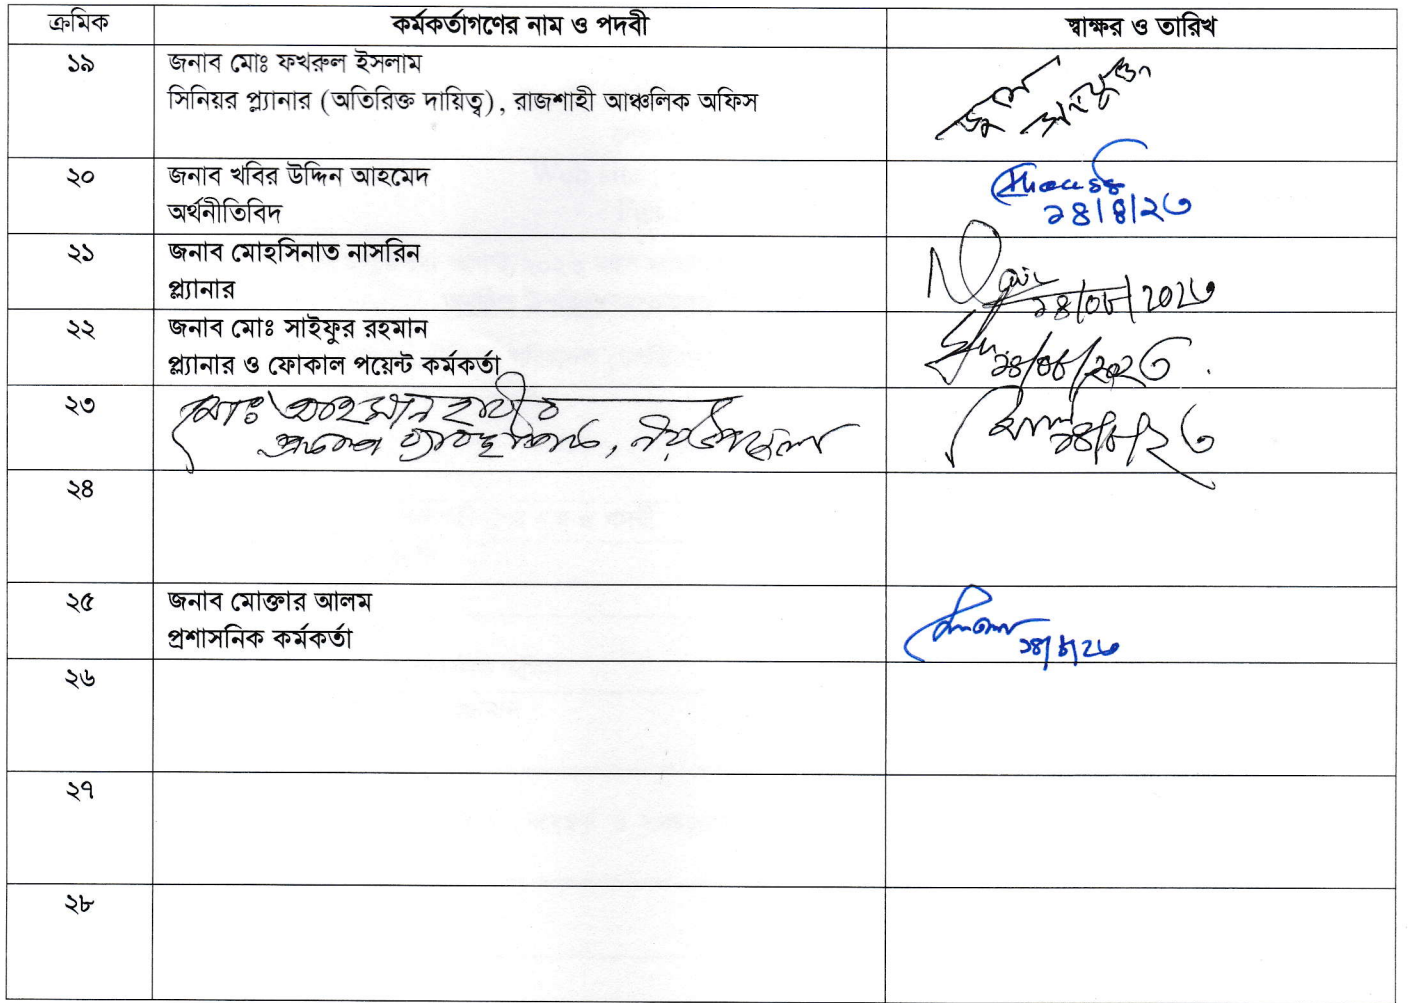 ক্রমিক কর্মকর্তাগণের নাম ও পদবী স্বাক্ষর ও তারিখ
১৯ জনাব মোঃ ফখরুল ইসলাম
সিনিয়র প্ল্যানার (অতিরিক্ত দায়িত্ব), রাজশাহী আঞ্চলিক অফিস
২০ জনাব খবির উদ্দিন আহমেদ
অর্থনীতিবিদ ২৪/৪/২৩
২১ জনাব মোহসিনাত নাসরিন
প্ল্যানার ২৪/০৮/২০২৩
২২ জনাব মোঃ সাইফুর রহমান
প্ল্যানার ও ফোকাল পয়েন্ট কর্মকর্তা ২৪/০৮/২০২৩
২৩ মোঃ আহসান হাবীব
২৪/৮/২৩
২৪
২৫ জনাব মোক্তার আলম
প্রশাসনিক কর্মকর্তা ২৪/৮/২৩
২৬
২৭
২৮